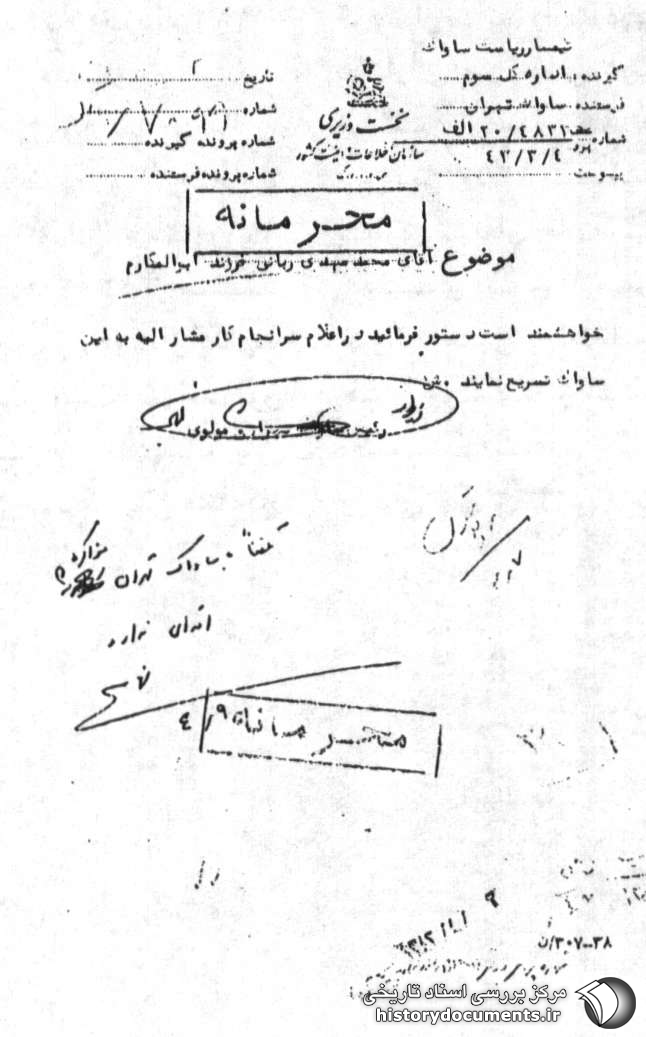 تیمسار ریاست ساواک
گیرنده : اداره کل سوم
فرستنده ساواک تهران
شماره ۲۰/۴۸۳۲ الف
۴۲/۳/۴
پیوست
نخست وزیری
سازمان اطلاعات و امنیت کشور
تاریخ
شماره
شماره پرونده گیرنده
شماره پرونده فرستنده
محرمانه
موضوع آقای محمد مهدی ربانی فرزند ابوالمکارم
خواهشمند است دستور فرمائید در اعلام سرانجام کار مشار الیه به این
ساواک تسریع نمایند
رئیس ساواک تهران مولوی
تلفناً به ساواک تهران مذاکره
اقدامی ندارد
محرمانه
۳۰۷-۳۸/ن
مرکز بررسی اسناد تاریخی
historydocuments.ir